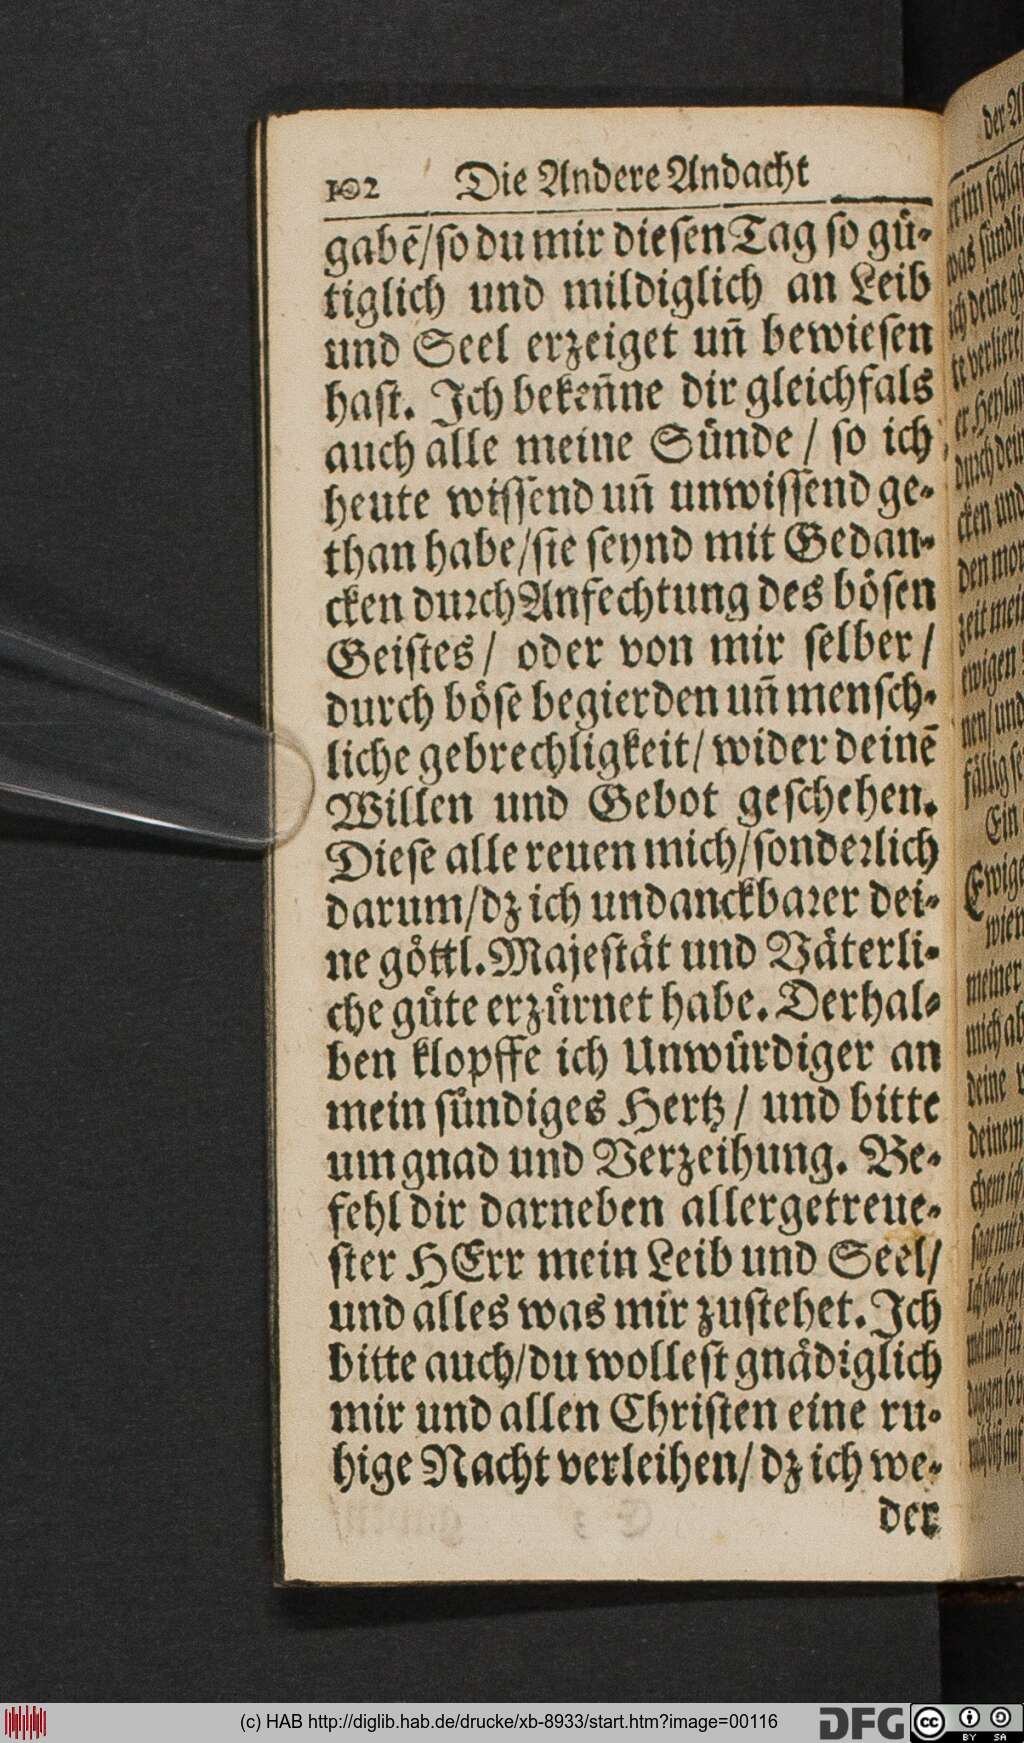 102 Die Andere Andacht
gabē/so du mir diesen Tag so gü-
tiglich und mildiglich an Leib
und Seel erzeiget uñ bewiesen
hast. Ich bekeñne dir gleichfals
auch alle meine Sünde / so ich
heute wissend uñ unwissend ge-
than habe/sie seynd mit Gedan-
cken durch Anfechtung des bösen
Geistes/ oder von mir selber/
durch böse begierden uñ mensch-
liche gebrechligkeit/ wider deinē
Willen und Gebot geschehen.
Diese alle reuen mich/sonderlich
darum/dz ich undanckbarer dei-
ne göttl. Majestät und Väterli-
che güte erzürnet habe. Derhal-
ben klopffe ich Unwürdiger an
mein sündiges Hertz/ und bitte
um gnad und Verzeihung. Be-
fehl dir darneben allergetreue-
ster HErr mein Leib und Seel/
und alles was mir zustehet. Ich
bitte auch/du wollest gnädiglich
mir und allen Christen eine ru-
hige Nacht verleihen/dz ich we-
der
der A
was sündli
ich deine gö
te verlierē
er Heylan
durch dein
cken und
den mor
zeit mei
ewigen
nen/und
fällig se
Ein
Ewige
wien
meiner
mich ab
deine
deinem
chem ich
(c) HAB http://diglib.hab.de/drucke/xb-8933/start.htm?image=00116
DFG
cc BY SA